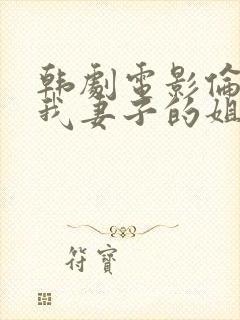 韩劇電影倫
我妻子的姐
符寳